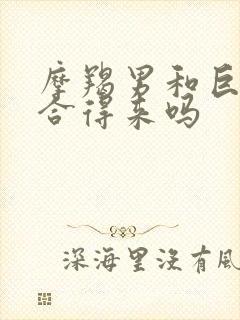 摩羯男和巨
合得来吗
深海里没有风